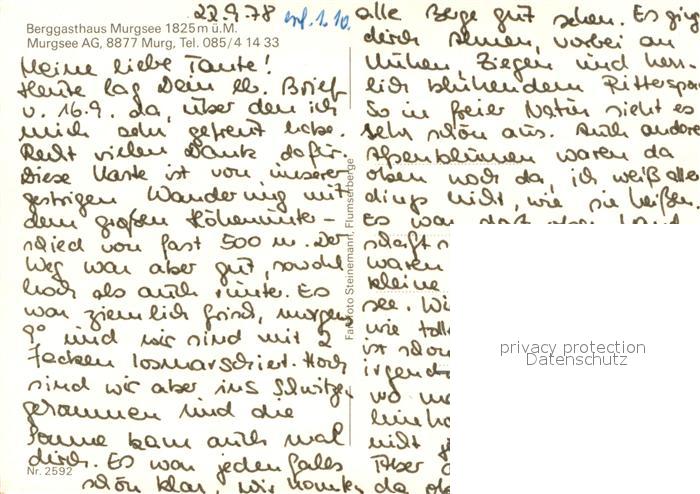 22.9.78 1.10.
Berggasthaus Murgsee 1825 m ü.M.
Murgsee AG, 8877 Murg, Tel. 085/4 14 33
Meine liebe Tante!
Heute lag Dein lb. Brief
v. 16.9. da, über den ich
mich sehr gefreut habe.
Recht vielen Dank dafür.
Diese Karte ist von unserer
gestrigen Wanderung mit
dem großen Höhenunter-
schied von fast 500 m. Der
Weg war aber gut, sowohl
hoch als auch runter. Es
war ziemlich frisch, morgens
9° und wir sind mit 2
Jacken losmarschiert. Hoch
sind wir aber ins Schwitzen
gekommen und die
Sonne kam auch mal
durch. Es war jedenfalls
schön klar, wir konnten
Nr. 2592
Farbfoto Steinemann, Flumserberge
alle Berge gut sehen. Es ging
durch, vorbei an
Kühen, Ziegen und herr-
lich blühendem Rittersporn
So in freier Natur sieht es
sehr schön aus. Auch andere
Alpenblumen waren da
oben noch da, ich weiß aller-
dings nicht, wie sie heißen.
Es war dort oben
waren
kleine
see. Wi
wie toll
ist schon
irgend
wo
nicht
Aber
da ob
privacy protection
Datenschutz